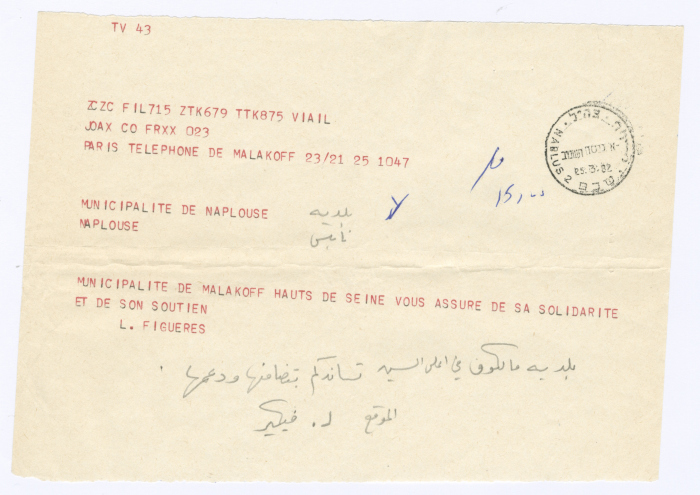 TV 43
ZCZC FIL715 ZTK679 TTK875 VIAIL
JOAX CO FRXX 023
PARIS TELEPHONE DE MALAKOFF 23/21 25 1047
NABLUS 2
MUNICIPALITE DE NAPLOUSE
بلديه
NAPLOUSE
نابلس
MUNICIPALITE DE MALAKOFF HAUTS DE SEINE VOUS ASSURE DE SA SOLIDARITE
ET DE SON SOUTIEN
L. FIGUERES
بلديه مالاكوف في اعلى السين تساندكم بتضامنها ودعمها
الموقع ل. فيكير